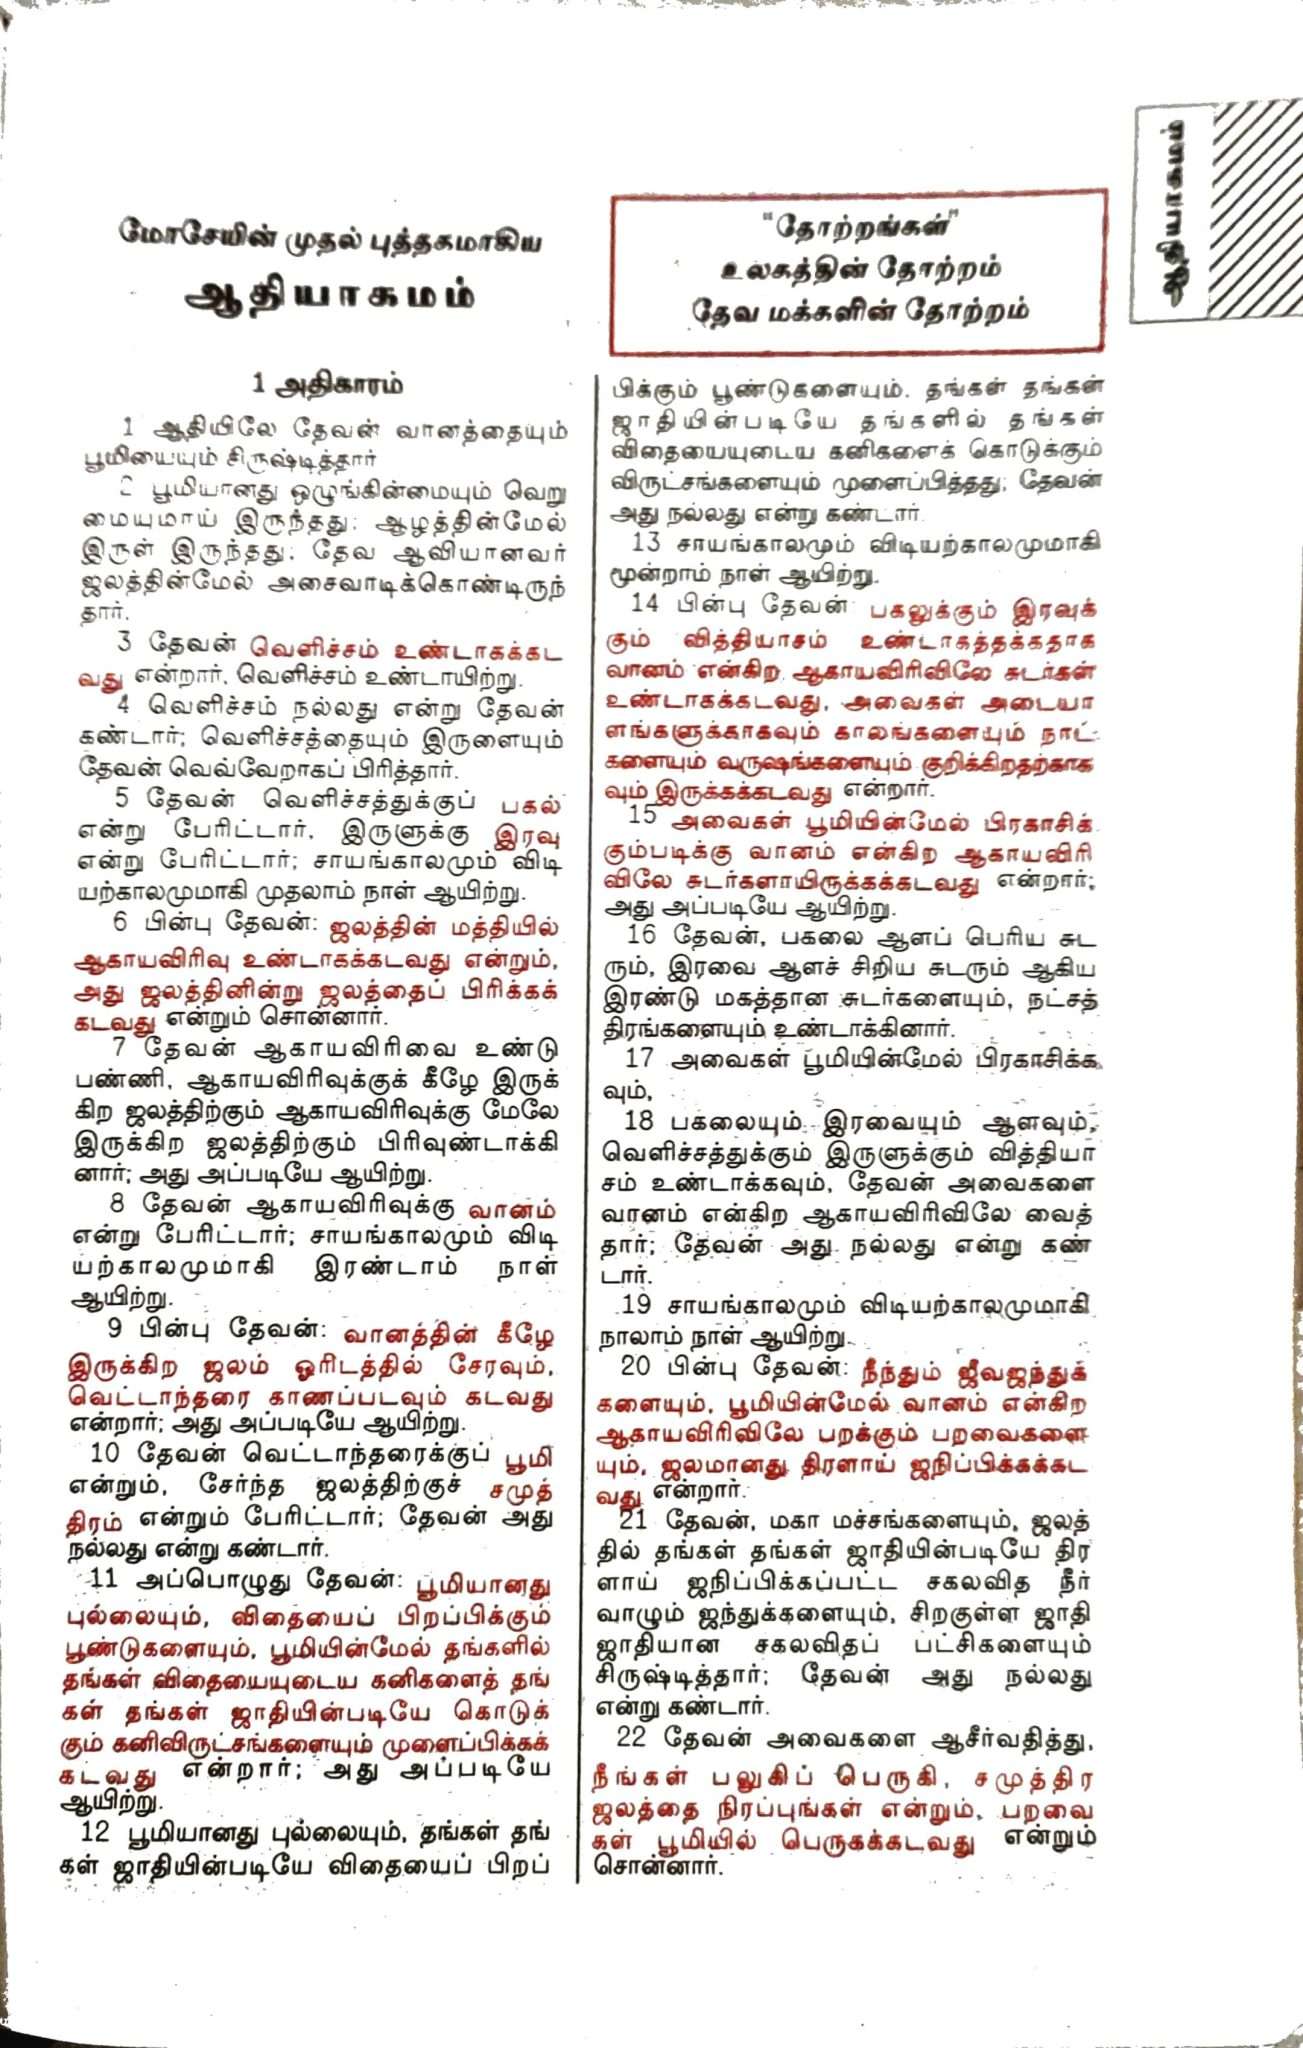 ஆதியாகமம்
மோசேயின் முதல் புத்தகமாகிய
ஆதியாகமம்
"தோற்றங்கள்"
உலகத்தின் தோற்றம்
தேவ மக்களின் தோற்றம்
1 அதிகாரம்
1 ஆதியிலே தேவன் வானத்தையும்
பூமியையும் சிருஷ்டித்தார்
2 பூமியானது ஒழுங்கின்மையும் வெறு
மையுமாய் இருந்தது; ஆழத்தின்மேல்
இருள் இருந்தது; தேவ ஆவியானவர்
ஜலத்தின்மேல் அசைவாடிக்கொண்டிருந்
தார்.
3 தேவன் வெளிச்சம் உண்டாகக்கட
வது என்றார், வெளிச்சம் உண்டாயிற்று.
4 வெளிச்சம் நல்லது என்று தேவன்
கண்டார்; வெளிச்சத்தையும் இருளையும்
தேவன் வெவ்வேறாகப் பிரித்தார்.
5 தேவன் வெளிச்சத்துக்குப் பகல்
என்று பேரிட்டார், இருளுக்கு இரவு
என்று பேரிட்டார்; சாயங்காலமும் விடி
யற்காலமுமாகி முதலாம் நாள் ஆயிற்று.
6 பின்பு தேவன்: ஜலத்தின் மத்தியில்
ஆகாயவிரிவு உண்டாகக்கடவது என்றும்,
அது ஜலத்தினின்று ஜலத்தைப் பிரிக்கக்
கடவது என்றும் சொன்னார்.
7 தேவன் ஆகாயவிரிவை உண்டு
பண்ணி, ஆகாயவிரிவுக்குக் கீழே இருக்
கிற ஜலத்திற்கும் ஆகாயவிரிவுக்கு மேலே
இருக்கிற ஜலத்திற்கும் பிரிவுண்டாக்கி
னார்; அது அப்படியே ஆயிற்று.
8 தேவன் ஆகாயவிரிவுக்கு வானம்
என்று பேரிட்டார்; சாயங்காலமும் விடி
யற்காலமுமாகி இரண்டாம் நாள்
ஆயிற்று.
9 பின்பு தேவன்: வானத்தின் கீழே
இருக்கிற ஜலம் ஓரிடத்தில் சேரவும்,
வெட்டாந்தரை காணப்படவும் கடவது
என்றார்; அது அப்படியே ஆயிற்று.
10 தேவன் வெட்டாந்தரைக்குப் பூமி
என்றும், சேர்ந்த ஜலத்திற்குச் சமுத்
திரம் என்றும் பேரிட்டார்; தேவன் அது
நல்லது என்று கண்டார்.
11 அப்பொழுது தேவன்: பூமியானது
புல்லையும், விதையைப் பிறப்பிக்கும்
பூண்டுகளையும், பூமியின்மேல் தங்களில்
தங்கள் விதையையுடைய கனிகளைத் தங்
கள் தங்கள் ஜாதியின்படியே கொடுக்
கும் கனிவிருட்சங்களையும் முளைப்பிக்கக்
கடவது என்றார்; அது அப்படியே
ஆயிற்று.
12 பூமியானது புல்லையும், தங்கள் தங்
கள் ஜாதியின்படியே விதையைப் பிறப்
பிக்கும் பூண்டுகளையும், தங்கள் தங்கள்
ஜாதியின்படியே தங்களில் தங்கள்
விதையையுடைய கனிகளைக் கொடுக்கும்
விருட்சங்களையும் முளைப்பித்தது; தேவன்
அது நல்லது என்று கண்டார்.
13 சாயங்காலமும் விடியற்காலமுமாகி
மூன்றாம் நாள் ஆயிற்று.
14 பின்பு தேவன்: பகலுக்கும் இரவுக்
கும் வித்தியாசம் உண்டாகத்தக்கதாக
வானம் என்கிற ஆகாயவிரிவிலே சுடர்கள்
உண்டாகக்கடவது, அவைகள் அடையா
ளங்களுக்காகவும் காலங்களையும் நாட்
களையும் வருஷங்களையும் குறிக்கிறதற்காக
வும் இருக்கக்கடவது என்றார்.
15 அவைகள் பூமியின்மேல் பிரகாசிக்
கும்படிக்கு வானம் என்கிற ஆகாயவிரி
விலே சுடர்களாயிருக்கக்கடவது என்றார்;
அது அப்படியே ஆயிற்று.
16 தேவன், பகலை ஆளப் பெரிய சுட
ரும், இரவை ஆளச் சிறிய சுடரும் ஆகிய
இரண்டு மகத்தான சுடர்களையும், நட்சத்
திரங்களையும் உண்டாக்கினார்.
17 அவைகள் பூமியின்மேல் பிரகாசிக்க
வும்,
18 பகலையும் இரவையும் ஆளவும்,
வெளிச்சத்துக்கும் இருளுக்கும் வித்தியா
சம் உண்டாக்கவும், தேவன் அவைகளை
வானம் என்கிற ஆகாயவிரிவிலே வைத்
தார்; தேவன் அது நல்லது என்று கண்
டார்.
19 சாயங்காலமும் விடியற்காலமுமாகி
நாலாம் நாள் ஆயிற்று.
20 பின்பு தேவன்: நீந்தும் ஜீவஜந்துக்
களையும், பூமியின்மேல் வானம் என்கிற
ஆகாயவிரிவிலே பறக்கும் பறவைகளை
யும், ஜலமானது திரளாய் ஜநிப்பிக்கக்கட
வது என்றார்.
21 தேவன், மகா மச்சங்களையும், ஜலத்
தில் தங்கள் தங்கள் ஜாதியின்படியே திர
ளாய் ஜநிப்பிக்கப்பட்ட சகலவித நீர்
வாழும் ஜந்துக்களையும், சிறகுள்ள ஜாதி
ஜாதியான சகலவிதப் பட்சிகளையும்
சிருஷ்டித்தார்; தேவன் அது நல்லது
என்று கண்டார்.
22 தேவன் அவைகளை ஆசீர்வதித்து,
நீங்கள் பலுகிப் பெருகி, சமுத்திர
ஜலத்தை நிரப்புங்கள் என்றும், பறவை
கள் பூமியில் பெருகக்கடவது என்றும்
சொன்னார்.